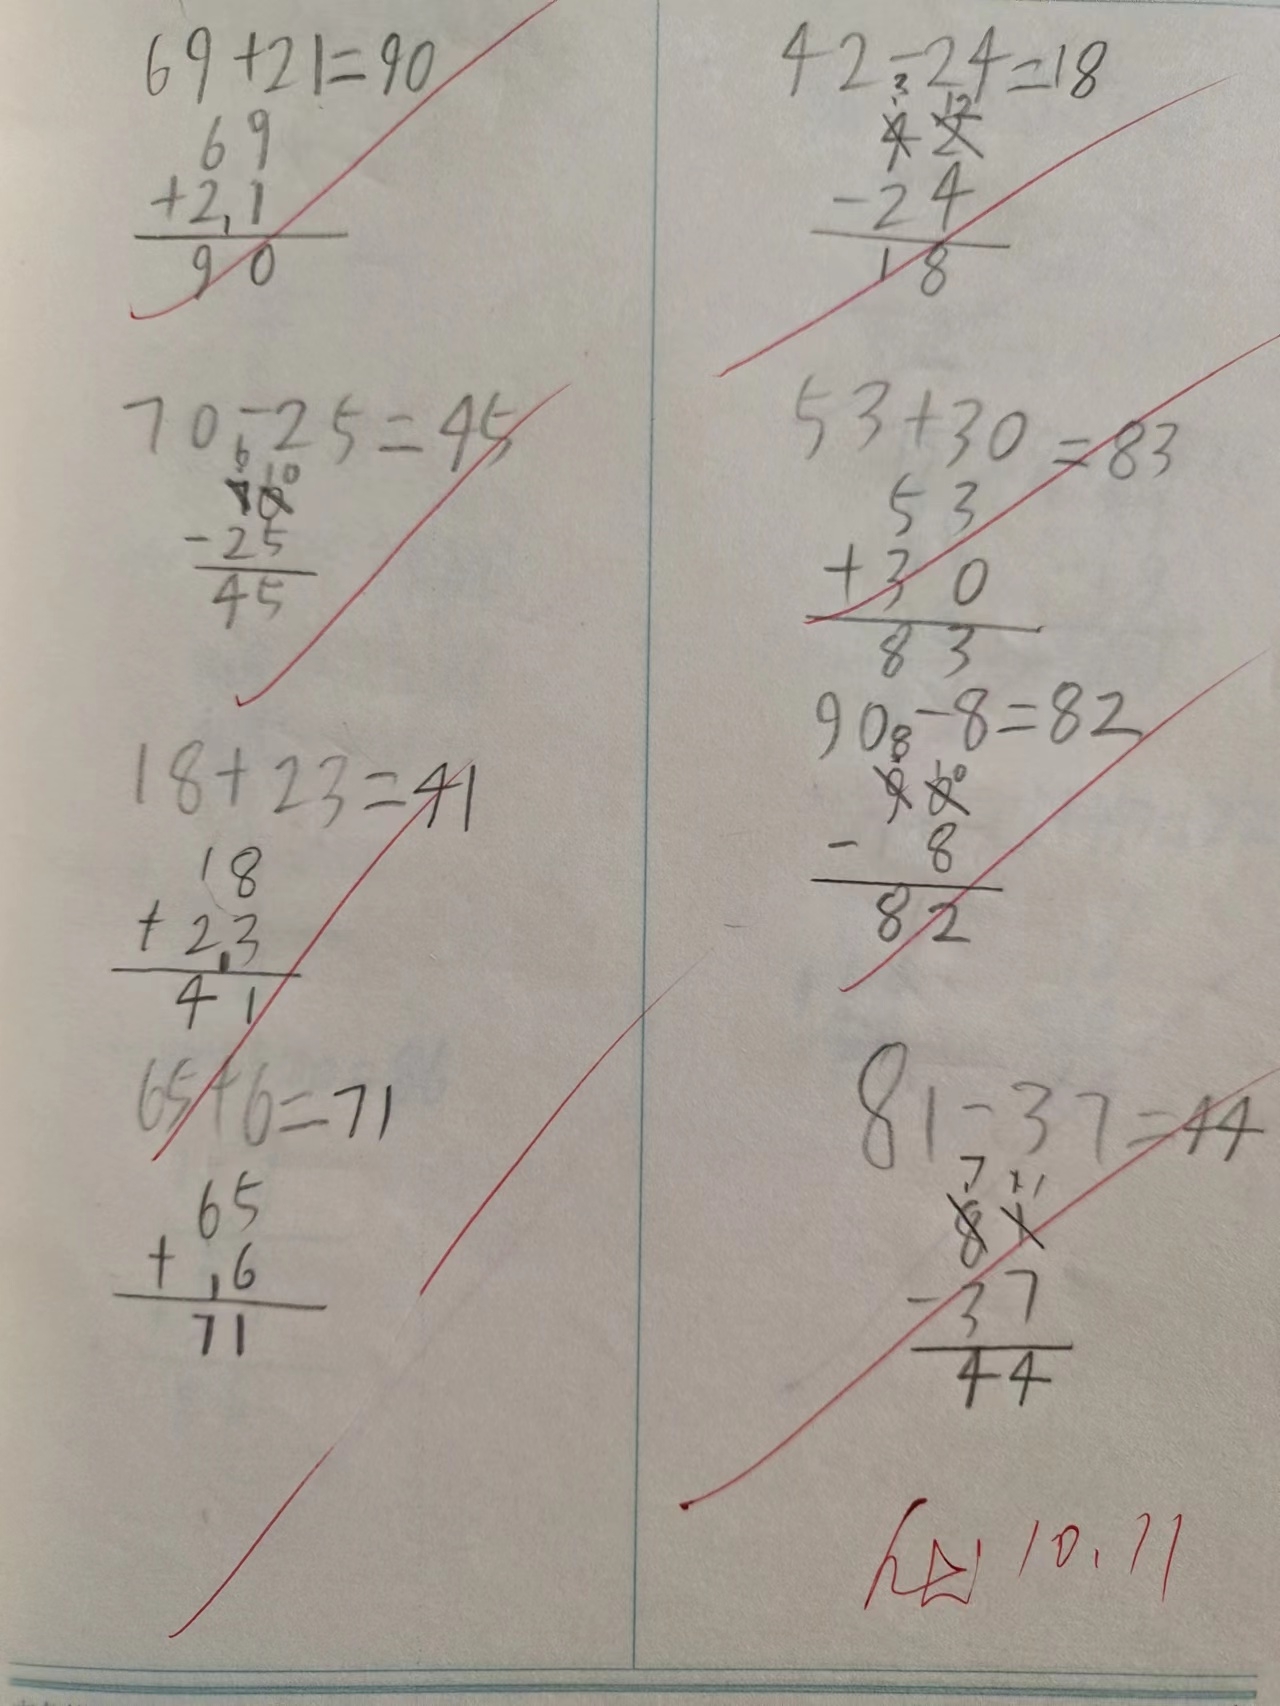 69+21=90
69
+21
90
70-25=45
6 10
70
-25
45
18+23=41
18
+23
41
65+6=71
65
+6
71
42-24=18
3 12
42
-24
18
53+30=83
53
+30
83
90-8=82
8 10
90
-8
82
81-37=44
7 11
81
-37
44
10.11